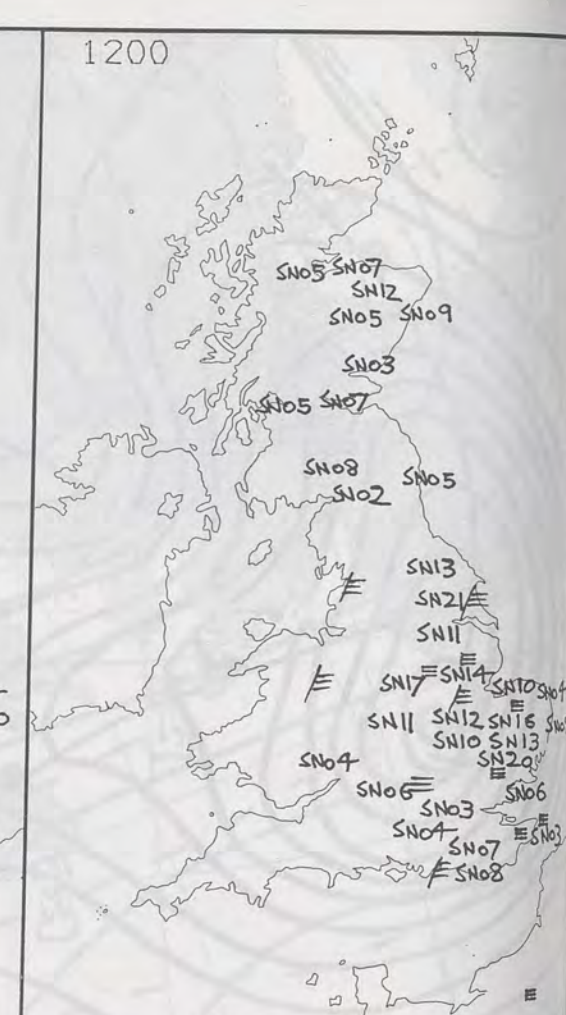 1200
SN05 SN07
SN12
SN05 SN09
SN03
SN05 SN07
SN08 SN05
SN02
SN13
SN21
SN11
SN17 SN14 SN10 SN04
SN11 SN12 SN16
SN10 SN13
SN04 SN20
SN06 SN06
SN03
SN04 SN03
SN07
SN08